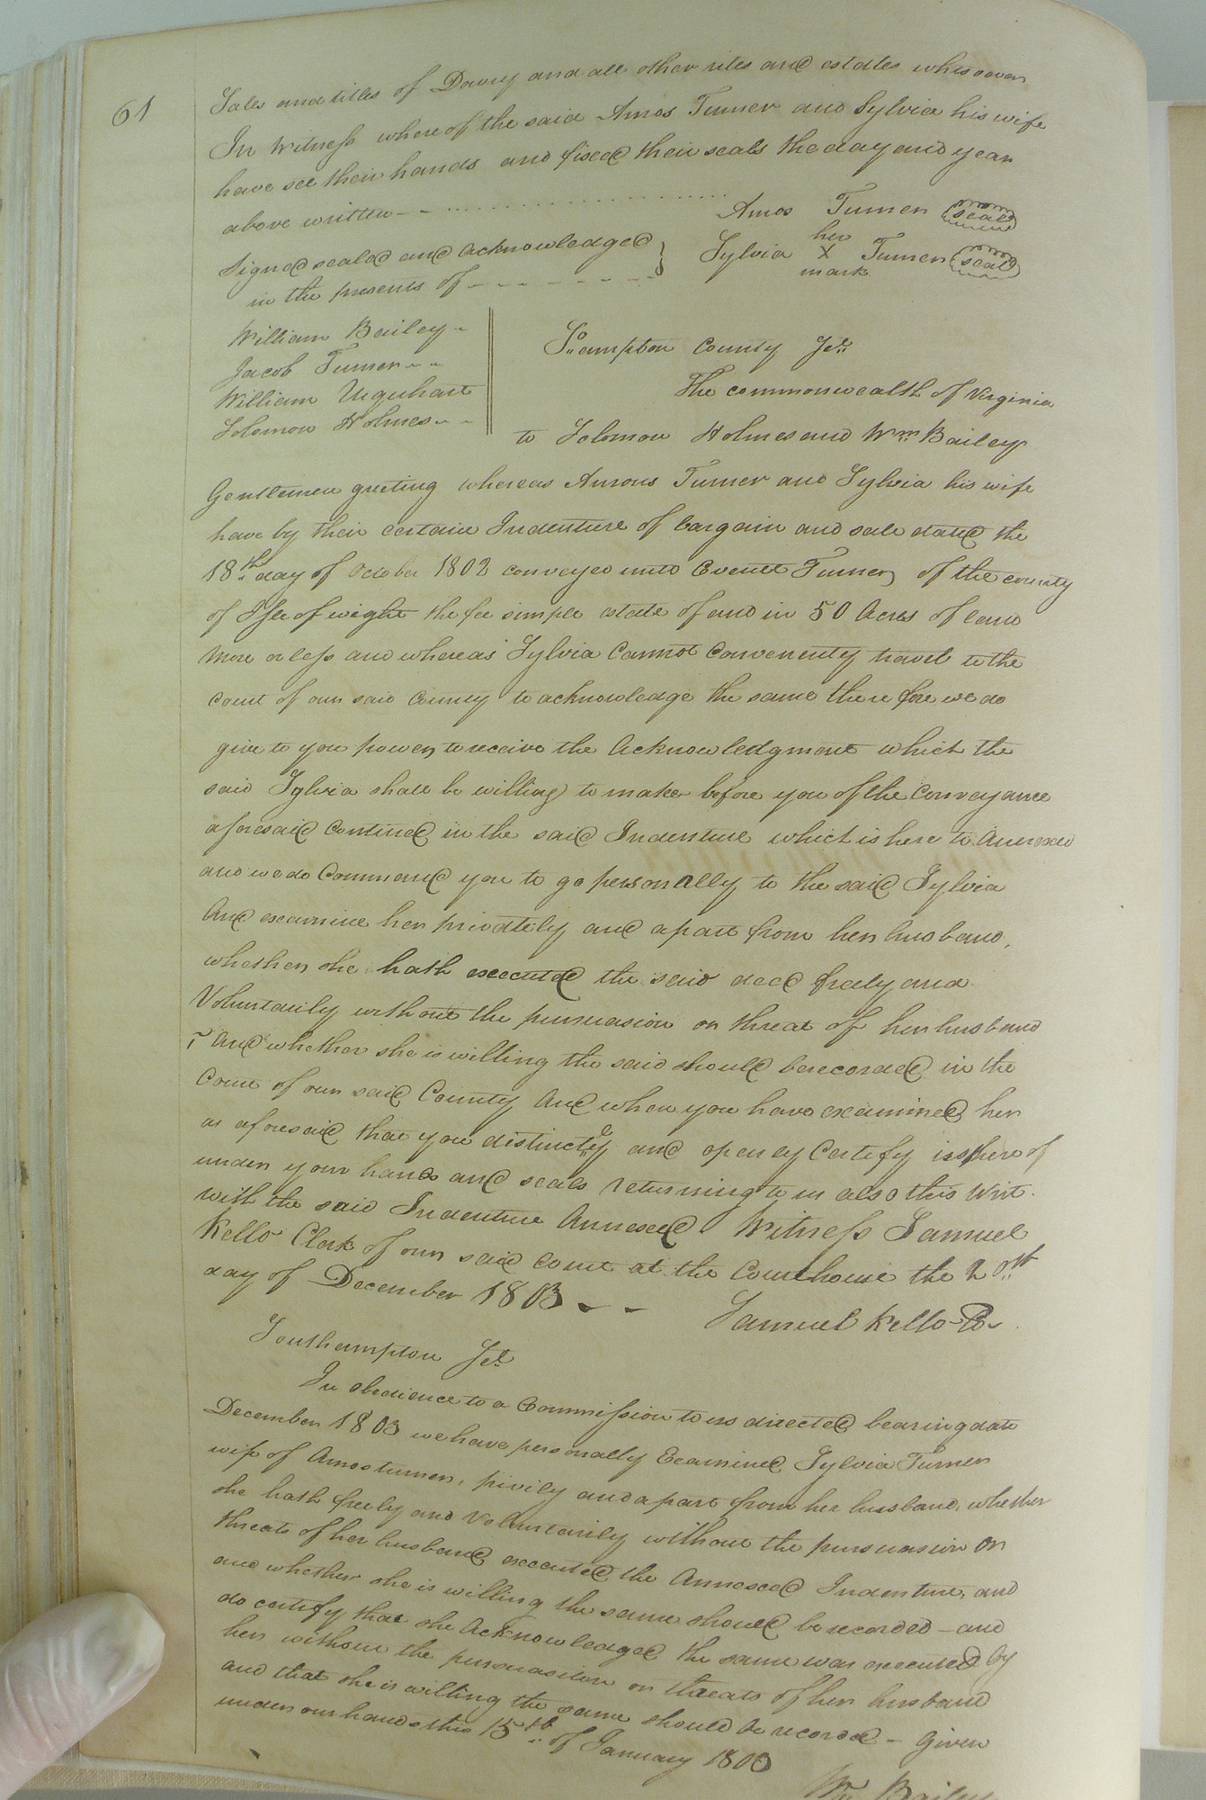 61
Sales and titles of Dowry and all other rites and estates whisoever
In Witness whereof the said Amos Turner and Sylvia his wife
have set their hands and fixed their seals the day and year
above written
Amos Turner (seal)
Signed sealed and acknowledged
in the presents of
Sylvia her X mark Turner (seal)
William Bailey
Jacob Turner
William Urquhart
Solomon Holmes
So.ampton County Sct.
The commonwealth of Virginia
to Solomon Holmes and Wm. Bailey
Gentlemen greeting whereas Amos Turner and Sylvia his wife
have by their certain Indenture of bargain and sale dated the
18th day of October 1802 conveyed unto Everett Turner of the county
of Isle of wight the fee simple estate of and in 50 Acres of land
more or less and whereas Sylvia Cannot Conveniently travel to the
Court of our said County to acknowledge the same there fore we do
give to you power to receive the Acknowledgment which the
said Sylvia shall be willing to make before you of the Conveyance
aforesaid Contined in the said Indenture which is here to Annexed
and we do Command you to go personally to the said Sylvia
And examine her privately and apart from her husband,
whether she hath executed the said deed freely and
Voluntarily without the pursuasion or threat of her husband
And whether she is willing the said should be recorded in the
Court of our said County And when you have examined her
as aforesaid that you distinctly and openly Certify us hereof
under your hands and seals returning to us also this Writ
with the said Indenture Annexed Witness Samuel
Kello Clerk of our said Court at the Courthouse the 20th
day of December 1803
Samuel Kello
Southampton Sct
In obedience to a Commission to us directed bearing date
December 1803 we have personally Examined Sylvia Turner
wife of Amos turner, privily and apart from her husband, whether
she hath freely and Voluntarily without the pursuasion or
threats of her husband executed the Annexed Indenture, and
and whether she is willing the same should be recorded - and
do certify that she Acknowledged the same was executed by
her without the pursuasion or threats of her husband
and that she is willing the same should be recorded - Given
under our hands this 15th of January 1803
Wm Bailey